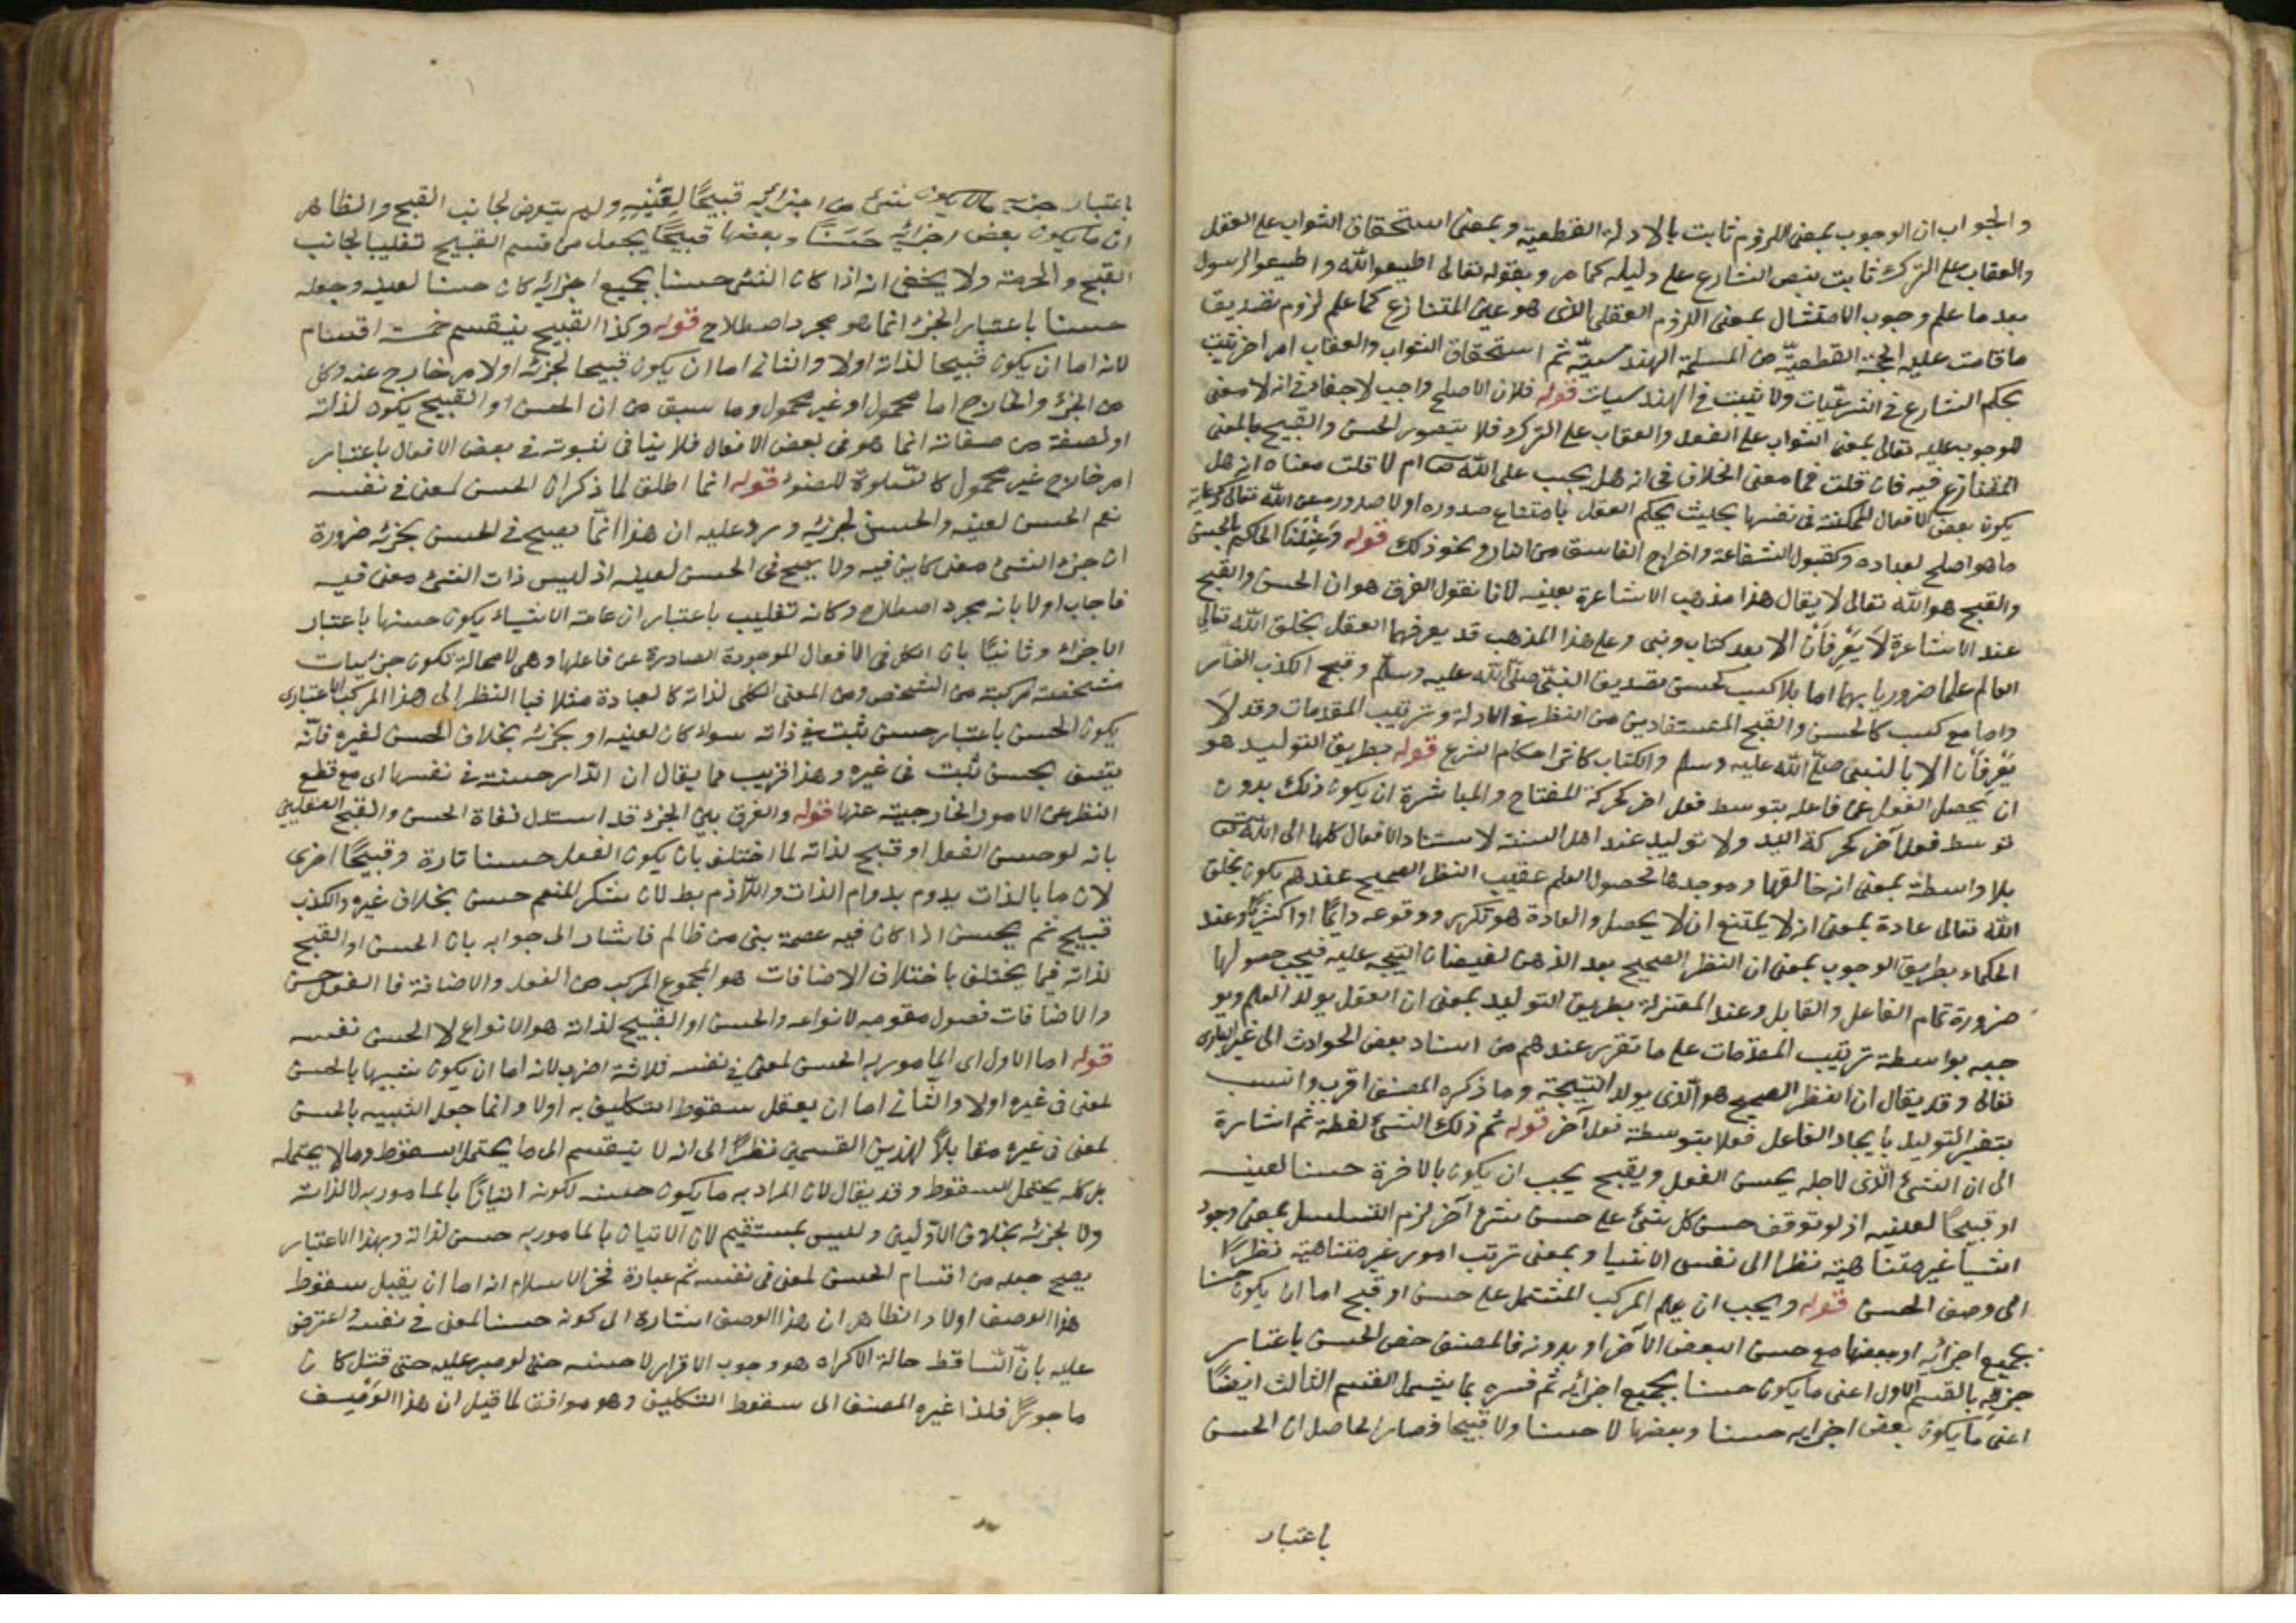 والجواب ان الوجوب بمعنى اللزوم ثابت بالادلة القطعية وبمعنى استحقاق الثواب على الفعل
والعقاب على الترك ثابت بنص الشارع على دليله كما مر وبقوله تعالى اطيعوا الله واطيعوا الرسول
بعد ما علم وجوب الامتثال بمعنى اللزوم العقلي الذى هو عين المتنازع كما علم لزوم تصديق
ما قامت عليه الحجة القطعية من المسئلة الهندسية ثم استحقاق الثواب والعقاب امر اخر يثبت
بحكم الشارع فى الشرعيات ولا يثبت فى الهندسيات قوله فلان الاصلح واجب لا خفاء فى انه لا معنى
للوجوب عليه تعالى بمعنى الثواب على الفعل والعقاب على الترك فلا يتصور الحسن والقبح بالمعنى
المتنازع فيه فان قلت فما معنى الخلاف فى انه هل يجب على الله ام لا قلت معناه انه هل
يكون بعض الافعال الممكنة فى نفسها بحيث يحكم العقل بامتناع صدوره او لا صدوره عن الله تعالى كرعاية
ما هو اصلح لعباده وكقبول الشفاعة واخراج الفاسق من النار ونحو ذلك قوله وعندنا الحاكم بالحسن
والقبح هو الله تعالى لا يقال هذا مذهب الاشاعرة بعينه لانا نقول الفرق هو ان الحسن والقبح
عند الاشاعرة لا يعرفان الا بعد كتاب ونبى وعلى هذا المذهب قد يعرفهما العقل بخلق الله تعالى
العالم علما ضروريا بهما اما بلا كسب كحسن تصديق النبى صلى الله عليه وسلم وقبح الكذب الضار
واما مع كسب كالحسن والقبح المستفادين من النظر فى الادلة وترتيب المقدمات وقد لا
يعرفان الا بالنبى صلى الله عليه وسلم والكتاب كاكثر احكام الشرع قوله بطريق التوليد هو
ان يحصل الفعل عن فاعله بتوسط فعل اخر كحركة المفتاح والمباشرة ان يكون ذلك بدون
توسط فعل آخر كحركة اليد ولا توليد عند اهل السنة لاستناد الافعال كلها الى الله تعالى
بلا واسطة بمعنى انه خالقها وموجدها فحصول العلم عقيب النظر الصحيح عندهم يكون بخلق
الله تعالى عادة بمعنى انه لا يمتنع ان لا يحصل والعادة هو تكرره ووقوعه دايما او اكثريا وعند
الحكماء بطريق الوجوب بمعنى ان النظر الصحيح يعد الذهن لفيضان النتيجة عليه فيجب حصولها
ضرورة تمام الفاعل والقابل وعند المعتزلة بطريق التوليد بمعنى ان العقل يولد العلم ويو
جبه بواسطة ترتيب المقدمات على ما تقرر عندهم من اسناد بعض الحوادث الى غير البارى
تعالى وقد يقال ان النظر الصحيح هو الذى يولد النتيجة وما ذكره المصنف اقرب وانسب
بتفسير التوليد بايجاد الفاعل فعلا بتوسطة فعل آخر قوله ثم ذلك الشئ لفظة ثم اشارة
الى ان الشئ الذى لاجله يحسن الفعل ويقبح يجب ان يكون بالاخرة حسنا لعينه
او قبيحا لعينه اذ لو توقف حسن كل شئ على حسن شئ آخر لزم التسلسل بمعنى وجود
اشيا غير متناهية نظرا الى نفس الاشيا وبمعنى ترتب امور غير متناهية نظرا
الى وصف الحسن قوله ويجب ان يعلم المركب المشتمل على حسن او قبح اما ان يكون حسنا
بجميع اجزائه او بعضها مع حسن البعض الآخر او بدونه فالمصنف خص الحسن باعتبار
جزئه بالقسم الاول اعنى ما يكون حسنا بجميع اجزائه ثم فسره بما يشمل القسم الثالث ايضا
اعنى ما يكون بعض اجزايه حسنا وبعضها لا حسنا ولا قبيحا فصار الحاصل ان الحسن
باعتبار
باعتبار جزئه مالا يكون شئ من اجزائه قبيحا لعينه ولم يتعرض لجانب القبح والظاهر
ان ما يكون بعض اجزائه حسنا وبعضها قبيحا يجعل من قسم القبيح تغليبا لجانب
القبح والحرمة ولا يخفى انه اذا كان الشئ حسنا بجميع اجزائه كان حسنا لعينه وجعله
حسنا باعتبار الجزء انما هو مجرد اصطلاح قوله وكذا القبيح ينقسم خمسة اقسام
لانه اما ان يكون قبيحا لذاته او لا والثانى اما ان يكون قبيحا لجزئه او لامر خارج عنه وكل
من الجزء والخارج اما محمول او غير محمول وما سبق من ان الحسن او القبيح يكون لذاته
او لصفة من صفاته انما هو فى بعض الافعال فلا ينافى ثبوته فى بعض الافعال باعتبار
امر خارج غير محمول كالصلوة للوضوء قوله انما اطلق لما ذكر ان الحسن لمعنى فى نفسه
نعم الحسن لعينه والحسن لجزئه ورد عليه ان هذا انما يصح فى الحسن بجزئه ضرورة
ان جزء الشئ معنى كاين فيه ولا يصح فى الحسن لعينه اذ ليس ذات الشئ معنى فيه
فاجاب اولا بانه مجرد اصطلاح وكانه تغليب باعتبار ان عامة الاشياء يكون حسنها باعتبار
الاجزاء وثانيا بان الكل فى الافعال الموجودة الصادرة عن فاعلها وهى لا محالة تكون جزييات
مشخصة مركبة من الشخص ومن المعنى الكلى لذاته كالعبادة مثلا فبالنظر الى هذا المركب الاعتبارى
يكون الحسن باعتبار حسن يثبت فى ذاته سواء كان لعينه او بجزئه بخلاف الحسن لغيره فانه
يتصف بحسن ثبت فى غيره وهذا قريب مما يقال ان الدار حسنة فى نفسها اى مع قطع
النظر عن الامور الخارجية عنها قوله والفرق بين الجزء قد استدل نفاة الحسن والقبح العقليين
بانه لو حسن الفعل او قبح لذاته لما اختلف بان يكون الفعل حسنا تارة وقبيحا اخرى
لان ما بالذات يدوم بدوام الذات واللازم بط لان شكر المنعم حسن بخلاف غيره والكذب
قبيح ثم يحسن اذا كان فيه عصمة نبى من ظالم فاشار الى جوابه بان الحسن او القبح
لذاته فيما يختلف باختلاف الاضافات هو المجموع المركب من الفعل والاضافة فالفعل جنس
والاضافات فصول مقومه لانواعه والحسن او القبيح لذاته هو الانواع لا الجنس نفسه
قوله اما الاول اى المامور به الحسن لمعنى فى نفسه ثلاثة اضرب لانه اما ان يكون شبيها بالحسن
لمعنى فى غيره اولا والثانى اما ان يعقل سقوط التكليف به اولا وانما جعل الشبيه بالحسن
لمعنى فى غيره مقابلا لهذين القسمين نظرا الى انه لا ينقسم الى ما يحتمل السقوط وما لا يحتمله
بل كله يحتمل السقوط وقد يقال لان المراد به ما يكون حسنه لكونه اتيانا بالمامور به لا لذاته
ولا لجزئه بخلاف الاولين وليس بمستقيم لان الاتيان بالمامور به حسن لذاته وبهذا الاعتبار
يصح جعله من اقسام الحسن لمعنى فى نفسه ثم عبارة فخر الاسلام انه اما ان يقبل سقوط
هذا الوصف اولا والظاهر ان هذا الوصف اشارة الى كونه حسنا لمعنى فى نفسه واعترض
عليه بان الساقط حالة الاكراه هو وجوب الاقرار لا حسنه حتى لو صبر عليه حتى قتل كان
ماجورا فلذا غيره المصنف الى سقوط التكليف وهو موافق لما قيل ان هذا الوصف